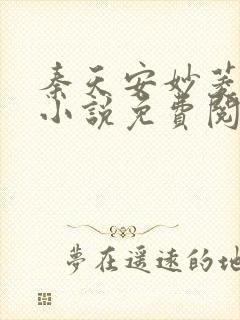 秦天安妙菱
小說免費閱
夢在遥遠的地